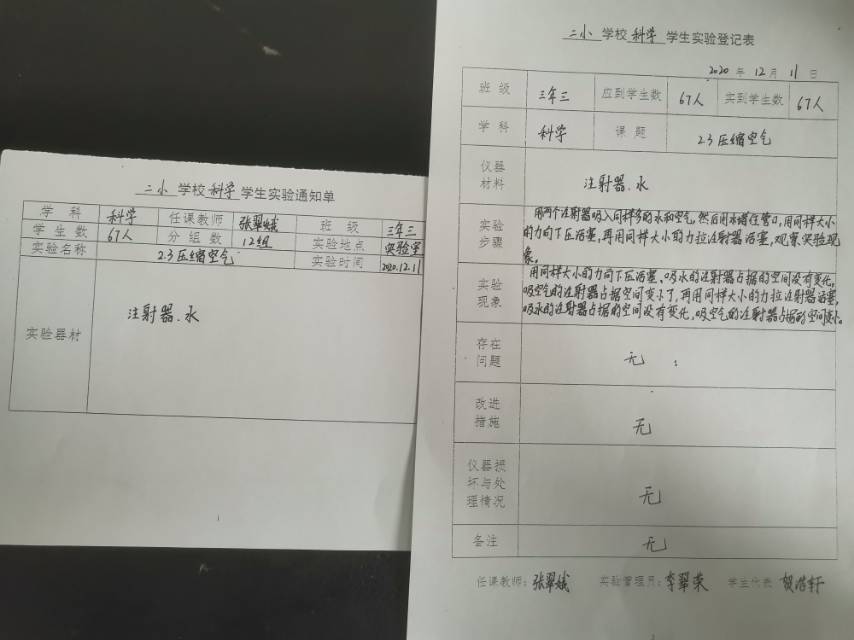 二小 学校 科学 学生实验通知单
学科 科学 任课教师 张翠娥 班级 三年三
学生数 67人 分组数 12组 实验地点 实验室
实验名称 2.3压缩空气 实验时间 2020.12.11
实验器材 注射器、水
二小 学校 科学 学生实验登记表
2020 年 12 月 11 日
班级 三年三 应到学生数 67人 实到学生数 67人
学科 科学 课题 2.3压缩空气
仪器
材料
注射器、水
实验
步骤
用两个注射器吸入同样多的水和空气,然后用木堵住管口,用同样大小
的力向下压活塞,再用同样大小的力拉注射器活塞,观察实验现
象。
实验
现象
用同样大小的力向下压活塞、吸水的注射器占据的空间没有变化,
吸空气的注射器占据空间变小了,再用同样大小的力拉注射器活塞,
吸水的注射器占据的空间没有变化,吸空气的注射器占据的空间变小。
存在
问题
无
改进
措施
无
仪器损
坏与处
理情况
无
备注 无
任课教师:张翠娥 实验管理员:李翠荣 学生代表 贺浩轩